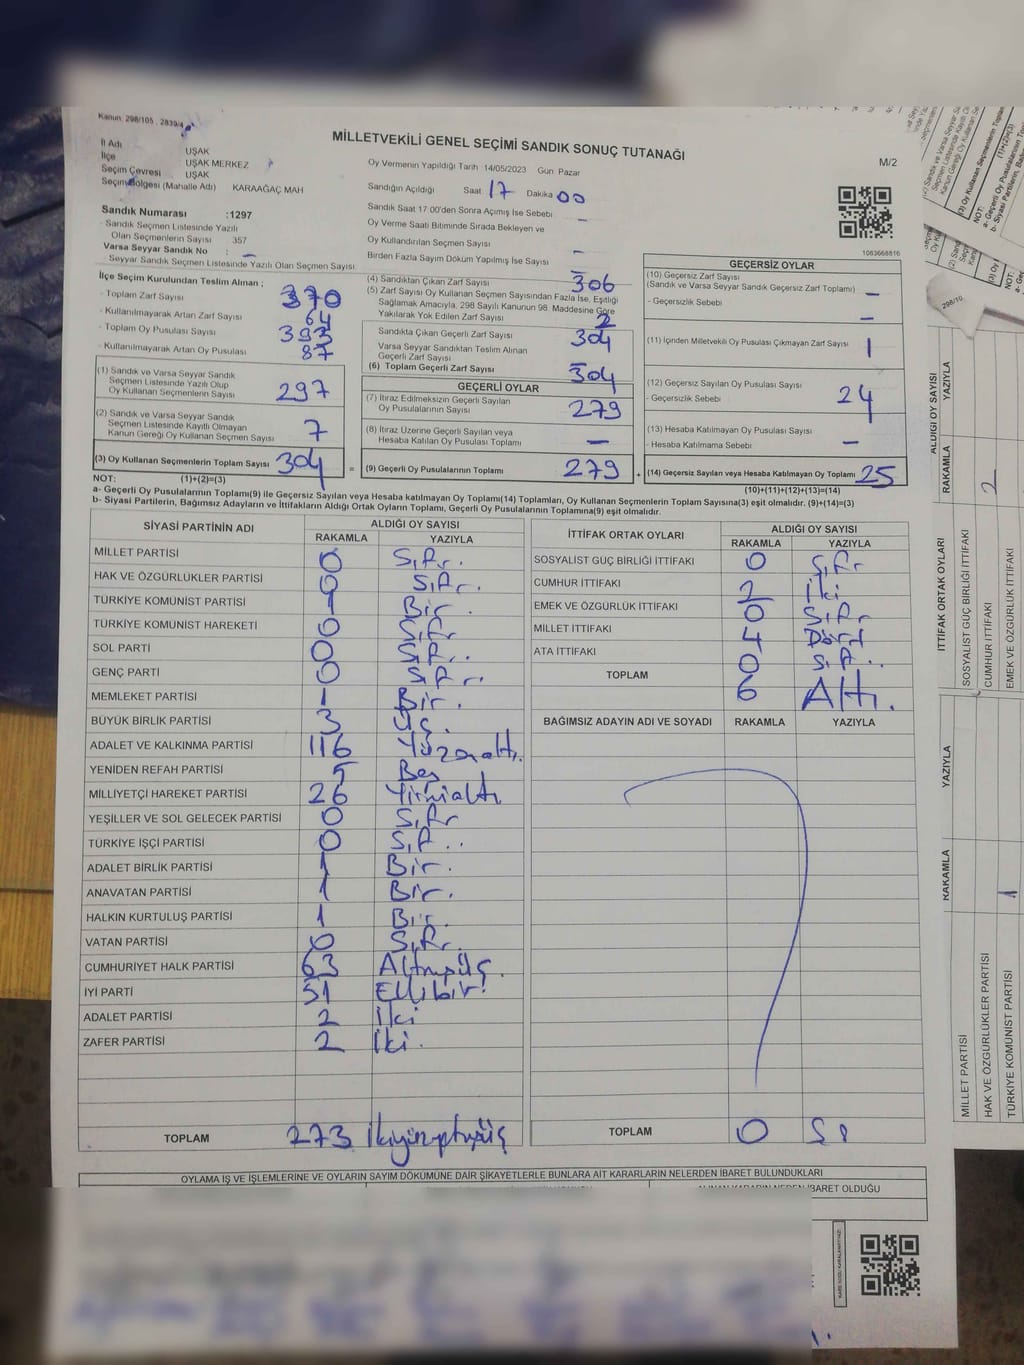 Kanun, 298/105, 2839/4
MİLLETVEKİLİ GENEL SEÇİMİ SANDIK SONUÇ TUTANAĞI
M/2
İl Adı UŞAK
İlçe UŞAK MERKEZ
Seçim Çevresi UŞAK
Seçim Bölgesi (Mahalle Adı) KARAAĞAÇ MAH
Sandık Numarası :1297
Sandık Seçmen Listesinde Yazılı
Olan Seçmenlerin Sayısı 357
Varsa Seyyar Sandık No : -
Seyyar Sandık Seçmen Listesinde Yazılı Olan Seçmen Sayısı:
Oy Vermenin Yapıldığı Tarih 14/05/2023 Gün Pazar
Sandığın Açıldığı Saat 17 Dakika 00
Sandık Saat 17:00'den Sonra Açılmış İse Sebebi -
Oy Verme Saati Bitiminde Sırada Bekleyen ve
Oy Kullandırılan Seçmen Sayısı -
Birden Fazla Sayım Döküm Yapılmış İse Sayısı -
1083668816
İlçe Seçim Kurulundan Teslim Alınan ;
- Toplam Zarf Sayısı 370
- Kullanılmayarak Artan Zarf Sayısı 64
- Toplam Oy Pusulası Sayısı 393
- Kullanılmayarak Artan Oy Pusulası 87
(1) Sandık ve Varsa Seyyar Sandık
Seçmen Listesinde Yazılı Olup
Oy Kullanan Seçmenlerin Sayısı 297
(2) Sandık ve Varsa Seyyar Sandık
Seçmen Listesinde Kayıtlı Olmayan
Kanun Gereği Oy Kullanan Seçmen Sayısı 7
(3) Oy Kullanan Seçmenlerin Toplam Sayısı 304
(4) Sandıktan Çıkan Zarf Sayısı 306
(5) Zarf Sayısı Oy Kullanan Seçmen Sayısından Fazla İse, Eşitliği
Sağlamak Amacıyla, 298 Sayılı Kanunun 98. Maddesine Göre
Yakılarak Yok Edilen Zarf Sayısı 2
Sandıkta Çıkan Geçerli Zarf Sayısı 304
Varsa Seyyar Sandıktan Teslim Alınan
Geçerli Zarf Sayısı -
(6) Toplam Geçerli Zarf Sayısı 304
GEÇERLİ OYLAR
(7) İtiraz Edilmeksizin Geçerli Sayılan
Oy Pusulalarının Sayısı 279
(8) İtiraz Üzerine Geçerli Sayılan veya
Hesaba Katılan Oy Pusulası Toplamı -
= (9) Geçerli Oy Pusulalarının Toplamı 279 +
GEÇERSİZ OYLAR
(10) Geçersiz Zarf Sayısı
(Sandık ve Varsa Seyyar Sandık Geçersiz Zarf Toplamı) -
- Geçersizlik Sebebi -
(11) İçinden Milletvekili Oy Pusulası Çıkmayan Zarf Sayısı 1
(12) Geçersiz Sayılan Oy Pusulası Sayısı
- Geçersizlik Sebebi 24
(13) Hesaba Katılmayan Oy Pusulası Sayısı
- Hesaba Katılmama Sebebi -
(14) Geçersiz Sayılan veya Hesaba Katılmayan Oy Toplamı 25
NOT: (1)+(2)=(3) (10)+(11)+(12)+(13)=(14)
a- Geçerli Oy Pusulalarının Toplamı(9) ile Geçersiz Sayılan veya Hesaba katılmayan Oy Toplamı(14) Toplamları, Oy Kullanan Seçmenlerin Toplam Sayısına(3) eşit olmalıdır. (9)+(14)=(3)
b- Siyasi Partilerin, Bağımsız Adayların ve İttifakların Aldığı Ortak Oyların Toplamı, Geçerli Oy Pusulalarının Toplamına(9) eşit olmalıdır.
SİYASİ PARTİNİN ADI ALDIĞI OY SAYISI
RAKAMLA YAZIYLA
MİLLET PARTİSİ 0 Sıfır.
HAK VE ÖZGÜRLÜKLER PARTİSİ 0 Sıfır.
TÜRKİYE KOMÜNİST PARTİSİ 1 Bir.
TÜRKİYE KOMÜNİST HAREKETİ 0 Sıfır
SOL PARTİ 0 Sıfır.
GENÇ PARTİ 0 Sıfır.
MEMLEKET PARTİSİ 1 Bir.
BÜYÜK BİRLİK PARTİSİ 3 Üç.
ADALET VE KALKINMA PARTİSİ 116 Yüzonaltı.
YENİDEN REFAH PARTİSİ 5 Beş
MİLLİYETÇİ HAREKET PARTİSİ 26 Yirmialtı
YEŞİLLER VE SOL GELECEK PARTİSİ 0 Sıfır
TÜRKİYE İŞÇİ PARTİSİ 0 Sıf..
ADALET BİRLİK PARTİSİ 1 Bir.
ANAVATAN PARTİSİ 1 Bir.
HALKIN KURTULUŞ PARTİSİ 1 Bir.
VATAN PARTİSİ 0 Sıfır.
CUMHURİYET HALK PARTİSİ 63 Altmışüç.
İYİ PARTİ 51 Ellibir.
ADALET PARTİSİ 2 İki
ZAFER PARTİSİ 2 İki.
TOPLAM 273 İkiyüzyetmişüç
İTTİFAK ORTAK OYLARI ALDIĞI OY SAYISI
RAKAMLA YAZIYLA
SOSYALİST GÜÇ BİRLİĞİ İTTİFAKI 0 Sıfır
CUMHUR İTTİFAKI 2 İki
EMEK VE ÖZGÜRLÜK İTTİFAKI 0 Sıfır
MİLLET İTTİFAKI 4 Dört
ATA İTTİFAKI 0 Sıf..
TOPLAM 6 Altı.
BAĞIMSIZ ADAYIN ADI VE SOYADI RAKAMLA YAZIYLA
TOPLAM 0 Sı
OYLAMA İŞ VE İŞLEMLERİNE VE OYLARIN SAYIM DÖKÜMÜNE DAİR ŞİKAYETLERLE BUNLARA AİT KARARLARIN NELERDEN İBARET BULUNDUKLARI
İBARET OLDUĞU
ALDIĞI OY SAYISI
RAKAMLA YAZIYLA
2
İTTİFAK ORTAK OYLARI
SOSYALİST GÜÇ BİRLİĞİ İTTİFAKI
CUMHUR İTTİFAKI
EMEK VE ÖZGÜRLÜK İTTİFAKI
RAKAMLA YAZIYLA
1
MİLLET PARTİSİ
HAK VE ÖZGÜRLÜKLER PARTİSİ
TÜRKİYE KOMÜNİST PARTİSİ